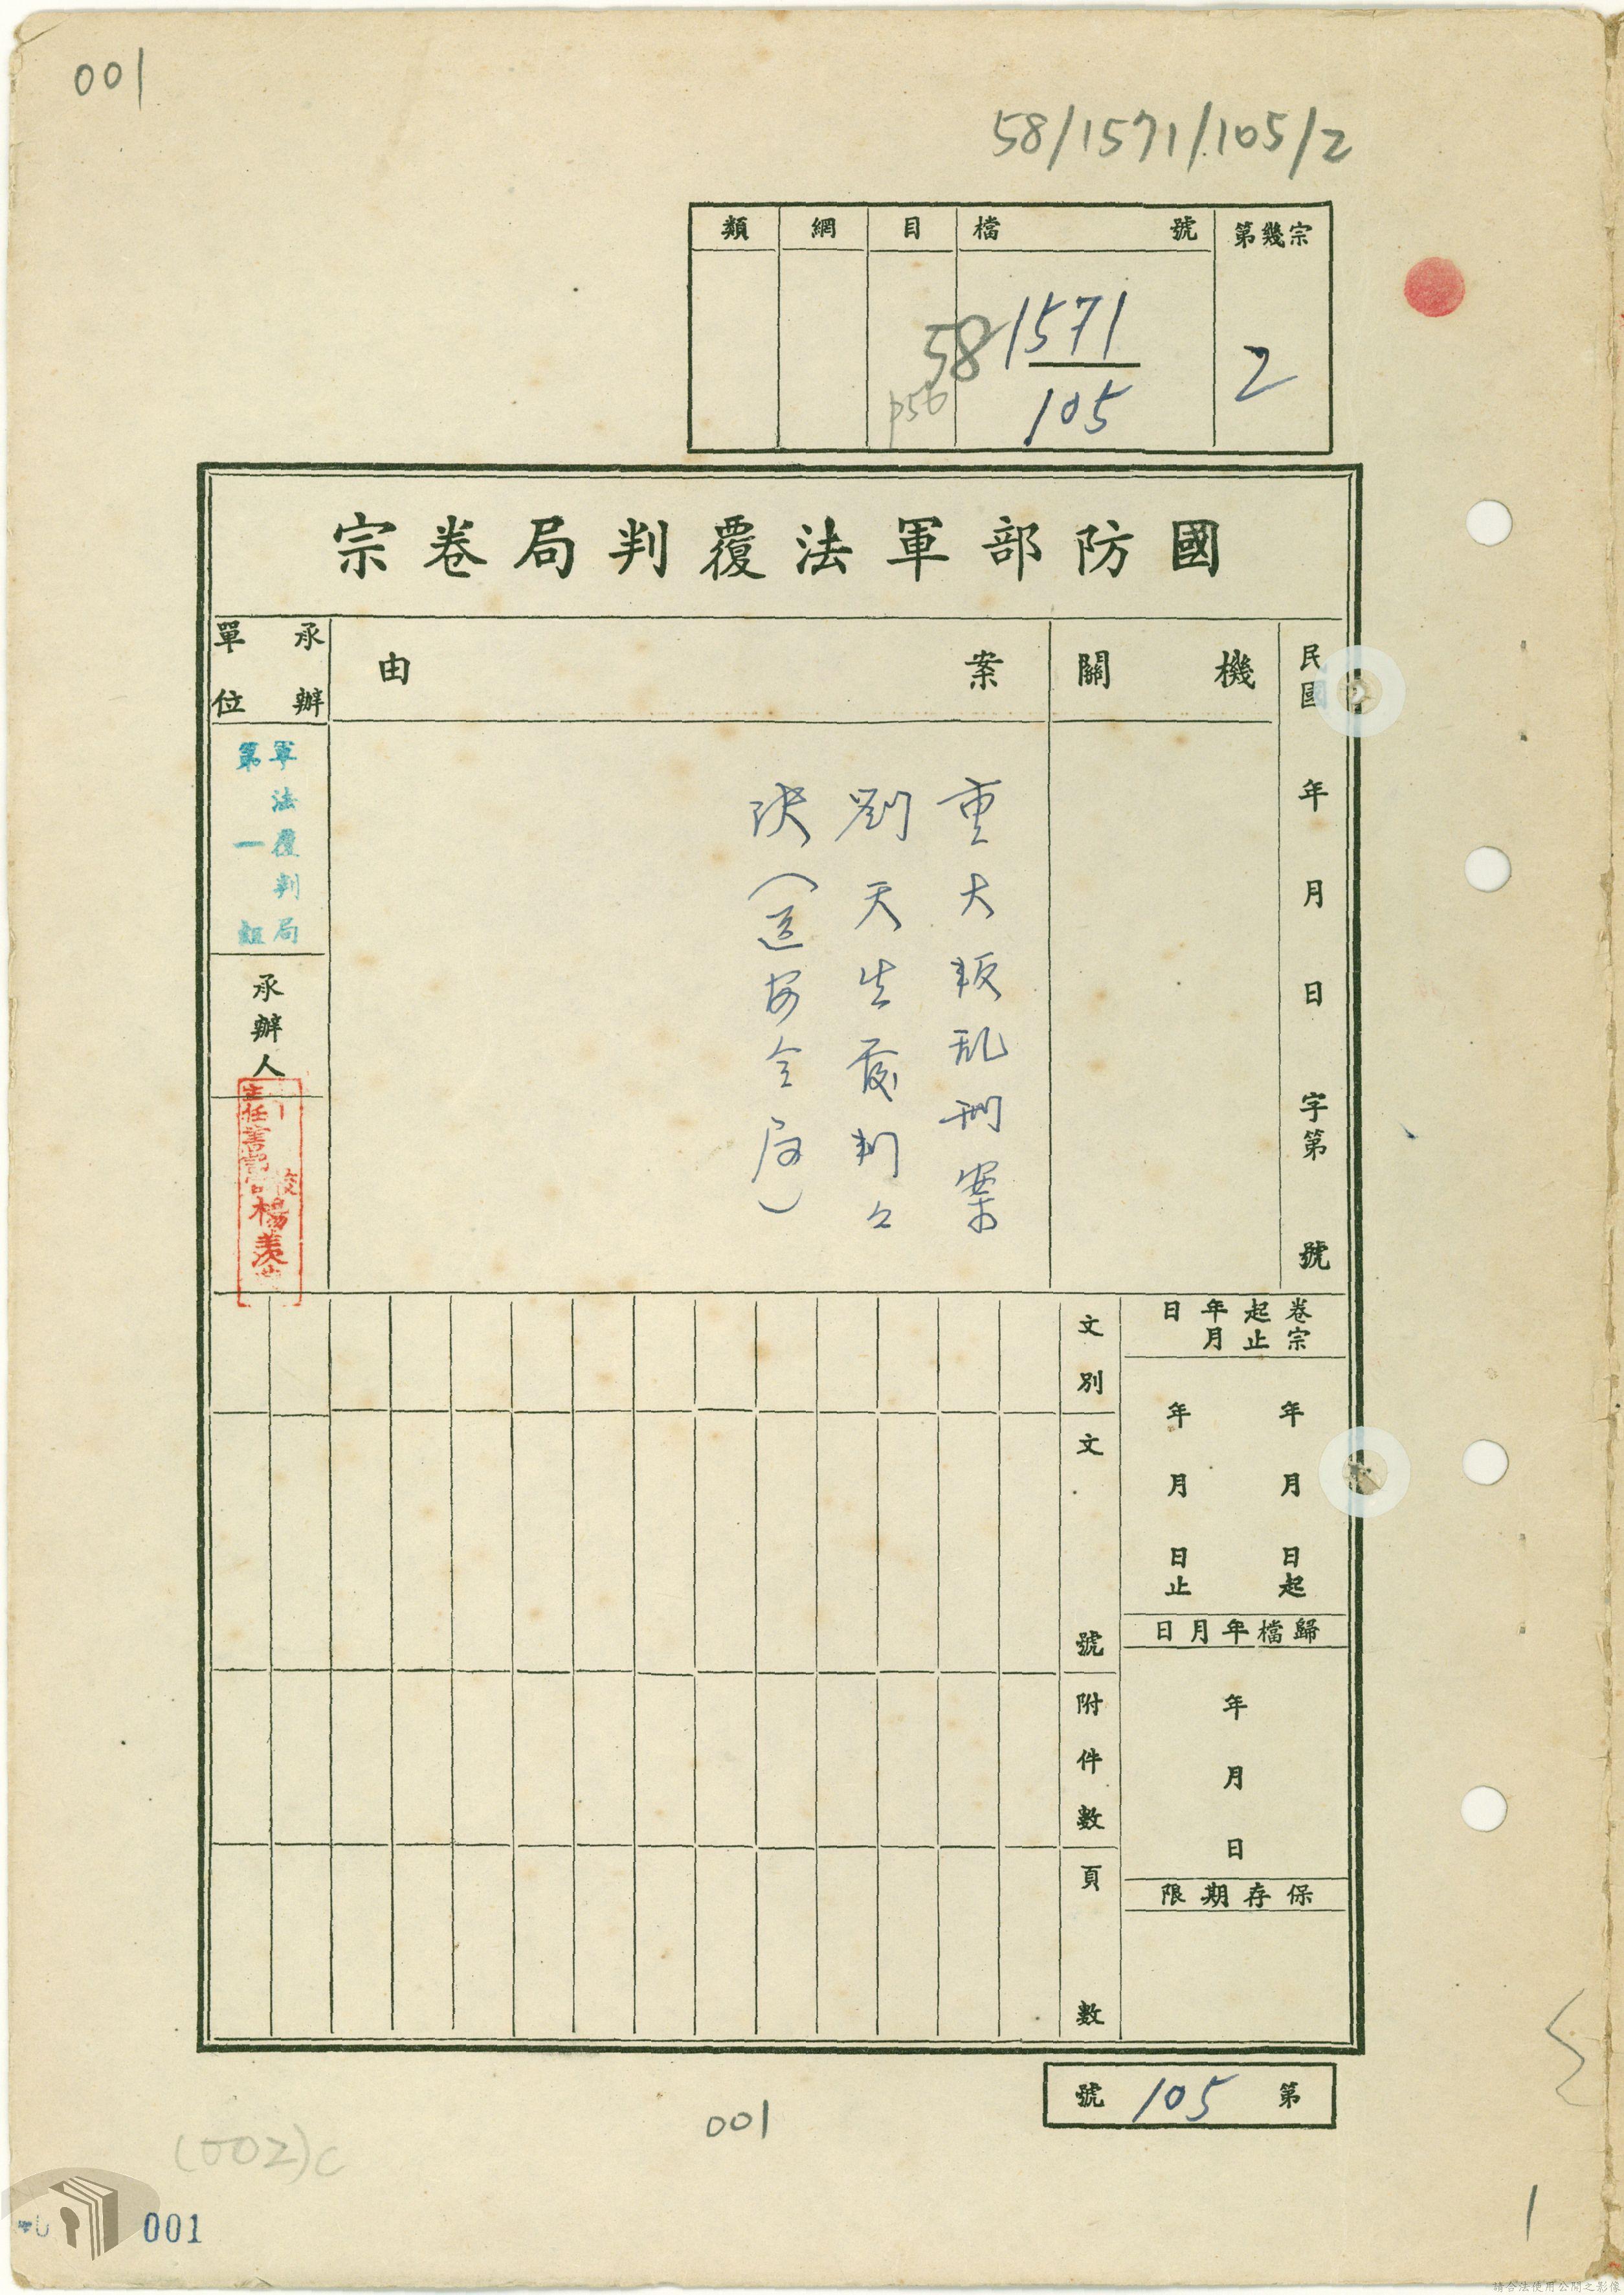 001
58/1571/105/2
類 網 目 檔號 第幾宗
58
1571
105
2
p56
國防部軍法覆判局卷宗
民國 年 月 日 字第 號
機關
案由
承辦單位
重大叛乱刑案
劉天生覆判公
(送安全局)
軍法覆判局
第一組
承辦人
主任書記官
楊
卷宗起止年月日
年 月 日起
年 月 日止
歸檔年月日
年 月 日
保存期限
文別
文號
附件數
頁數
第 105 號
001
(002)c
001
1
請合法使用公開之影像